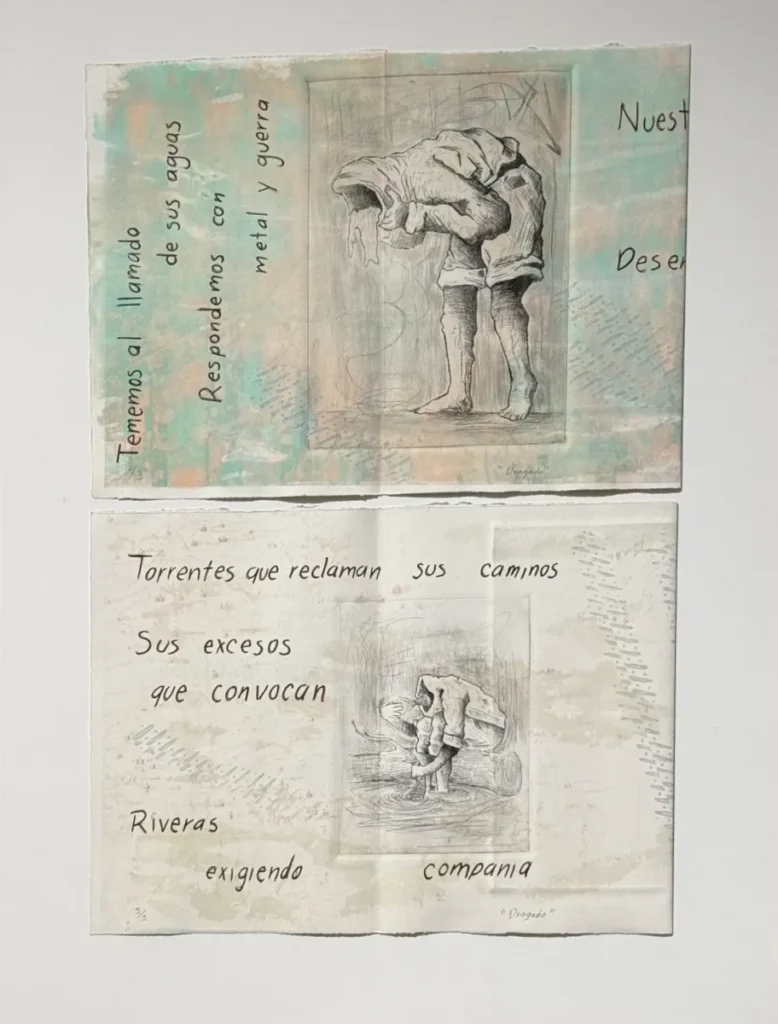 Tememos al llamado
de sus aguas
Respondemos con
metal y guerra
Nuest
Deser
1/3
"Dragado"
Torrentes que reclaman sus caminos
Sus excesos
que convocan
Riveras
exigiendo compania
3/3
"Dragado"